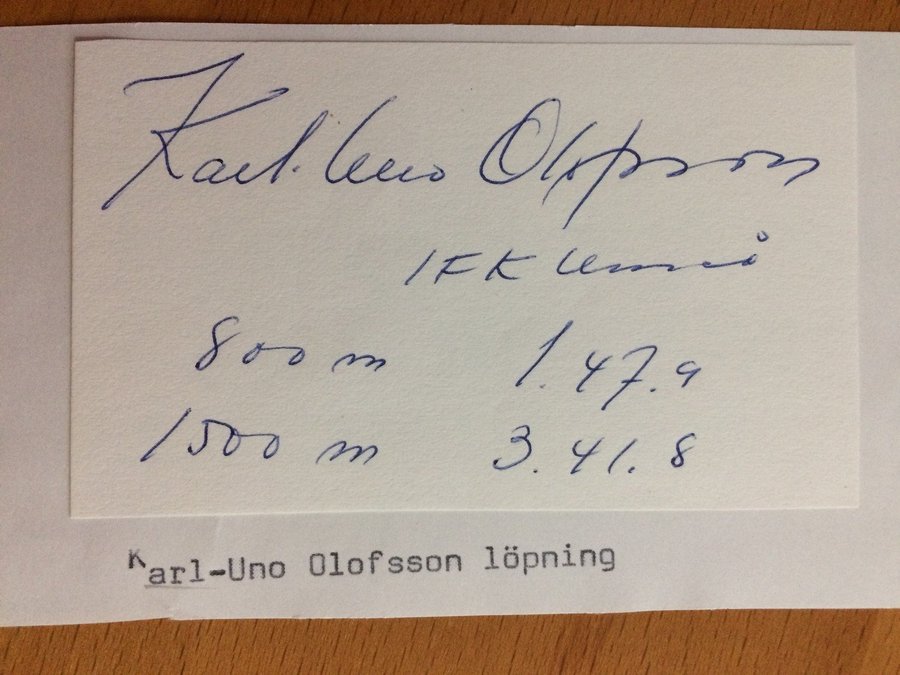 Karl-Uno Olofsson
IFK Umeå
800 m 1.47.9
1500 m 3.41.8
Karl-Uno Olofsson löpning